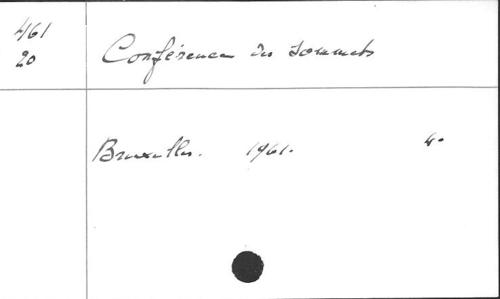 461
20
Conférence des sommets
Bruxelles. 1961. 4°